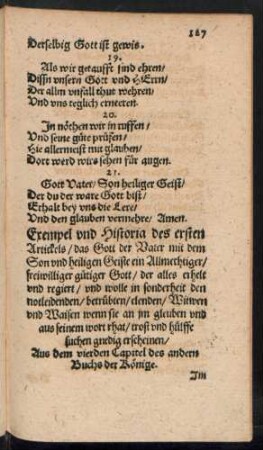 127
Derselbig Gott ist gewis.
19.
Als wir getaufft sind ehren/
Dissn vnsern Gott vnd HErrn/
Der allm vnfall thut wehren/
Vnd vns teglich erneeren.
20.
In nöthen wir in ruffen/
Vnd seine güte prüfen/
Hie allermeist mit glauben/
Dort werd wirs sehen für augen.
21.
Gott Vater/ Son heiliger Geist/
Der du der ware Gott bist/
Erhalt bey vns die Lere/
Vnd den glauben vermehre/ Amen.
Exempel vnd Historia des ersten
Artickels/ das Gott der Vater mit dem
Son vnd heiligen Geiste ein Allmechtiger/
freiwilliger gütiger Gott/ der alles erhelt
vnd regiert/ vnd wolle in sonderheit den
notleidenden/ betrübten/ elenden/ Witwen
vnd Waisen wenn sie an jm gleuben vnd
aus seinem wort rhat/ trost vnd hülffe
suchen gnedig erscheinen/
Aus dem vierden Capitel des andern
Buchs der Könige.
Im